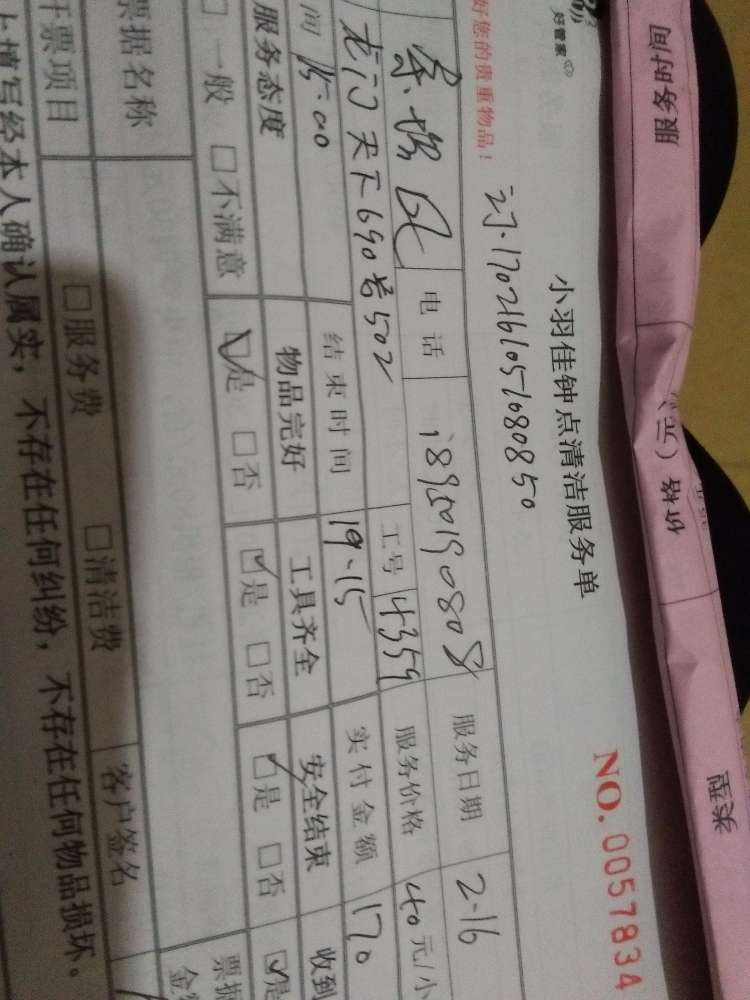 好管家
小羽佳钟点清洁服务单
NO. 0057834
好您的贵重物品!
订.1702161051080850
电话 18950190808 服务日期 2-16
龙门天下690号502 工号 4359 服务价格 40元/小
间 15.00 结束时间 19.15 实付金额 170
服务态度 物品完好 工具齐全 安全结束 收到
□一般 □不满意 ☑是 □否 ☑是 □否 ☑是 □否 ☑是
票据名称 票据
金
开票项目 □服务费 □清洁费 客户签名
上填写经本人确认属实，不存在任何纠纷，不存在任何物品损坏。
服务时间 价格（元） 类型